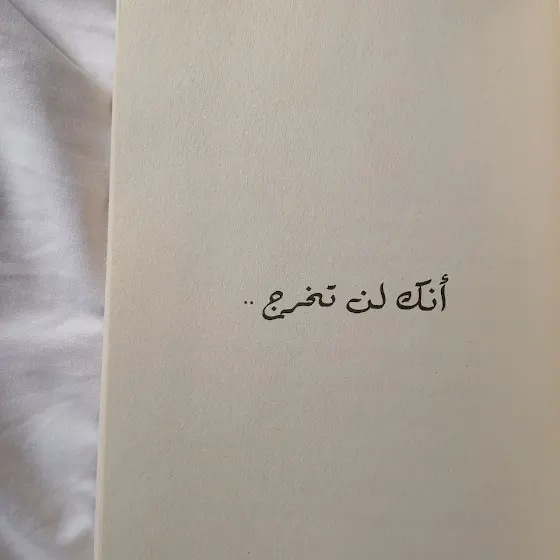 أنك لن تخرج ..